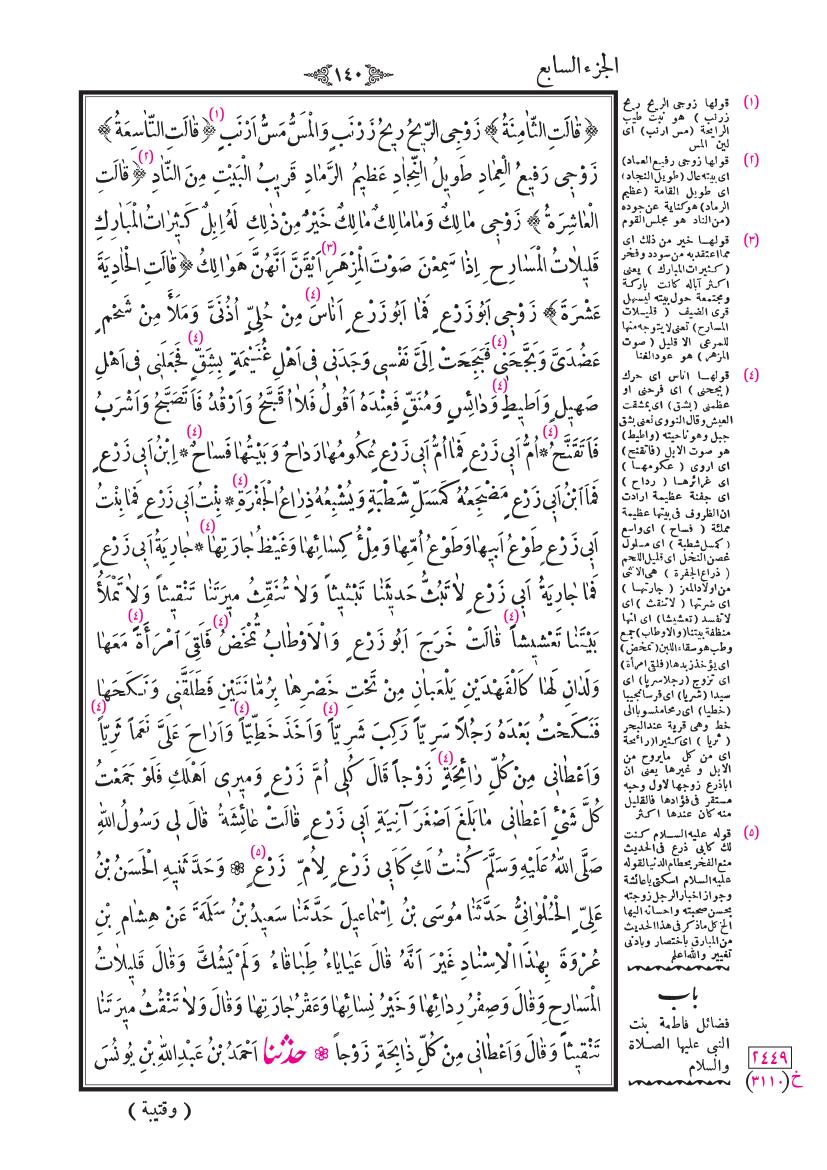 الجزء السابع
﴿ ١٤٠ ﴾
﴿ قَالَتِ الثَّامِنَةُ ﴾ زَوْجِى الرِّيحُ رِيحُ زَرْنَبٍ وَالْمَسُّ مَسُّ اَرْنَبٍ (١) ﴿ قَالَتِ التَّاسِعَةُ ﴾
زَوْجِى رَفِيعُ الْعِمَادِ طَوِيلُ النِّجَادِ عَظِيمُ الرَّمَادِ قَرِيبُ الْبَيْتِ مِنَ النَّادِ (٢) ﴿ قَالَتِ
الْعَاشِرَةُ ﴾ زَوْجِى مَالِكٌ وَمَا مَالِكٌ مَالِكٌ خَيْرٌ مِنْ ذٰلِكِ لَهُ اِبِلٌ كَثِيرَاتُ الْمَبَارِكِ
قَلِيلَاتُ الْمَسَارِحِ اِذَا سَمِعْنَ صَوْتَ الْمِزْهَرِ (٣) اَيْقَنَّ اَنَّهُنَّ هَوَالِكُ ﴿ قَالَتِ الْحَادِيَةَ
عَشْرَةَ ﴾ زَوْجِى اَبُو زَرْعٍ فَمَا اَبُو زَرْعٍ اَنَاسَ (٤) مِنْ حُلِىٍّ اُذُنَىَّ وَمَلَأَ مِنْ شَحْمٍ
عَضُدَىَّ وَبَجَّحَنِى (٤) فَبَجِحَتْ اِلَىَّ نَفْسِى وَجَدَنِى فِى اَهْلِ غُنَيْمَةٍ بِشِقٍّ (٤) فَجَعَلَنِى فِى اَهْلِ
صَهِيلٍ وَاَطِيطٍ (٤) وَدَائِسٍ وَمُنَقٍّ فَعِنْدَهُ اَقُولُ فَلَا اُقَبَّحُ وَاَرْقُدُ فَاَتَصَبَّحُ وَاَشْرَبُ
فَاَتَقَنَّحُ (٤) * اُمُّ اَبِى زَرْعٍ فَمَا اُمُّ اَبِى زَرْعٍ عُكُومُهَا رَدَاحٌ وَبَيْتُهَا فَسَاحٌ (٤) * اِبْنُ اَبِى زَرْعٍ
فَمَا ابْنُ اَبِى زَرْعٍ مَضْجَعُهُ كَمَسَلِّ شَطْبَةٍ وَيُشْبِعُهُ ذِرَاعُ الْجَفْرَةِ (٤) * بِنْتُ اَبِى زَرْعٍ فَمَا بِنْتُ
اَبِى زَرْعٍ طَوْعُ اَبِيهَا وَطَوْعُ اُمِّهَا وَمِلْءُ كِسَائِهَا وَغَيْظُ جَارَتِهَا (٤) * جَارِيَةُ اَبِى زَرْعٍ
فَمَا جَارِيَةُ اَبِى زَرْعٍ لَا تَبُثُّ حَدِيثَنَا تَبْثِيثاً وَلَا تُنَقِّثُ مِيرَتَنَا تَنْقِيثاً وَلَا تَمْلَأُ
بَيْتَنَا تَعْشِيشاً (٤) قَالَتْ خَرَجَ اَبُو زَرْعٍ وَالْاَوْطَابُ تُمْخَضُ (٤) فَلَقِىَ امْرَأَةً (٤) مَعَهَا
وَلَدَانِ لَهَا كَالْفَهْدَيْنِ يَلْعَبَانِ مِنْ تَحْتِ خَصْرِهَا بِرُمَّانَتَيْنِ فَطَلَّقَنِى وَنَكَحَهَا
فَنَكَحْتُ بَعْدَهُ رَجُلًا سَرِيّاً رَكِبَ شَرِيّاً (٤) وَاَخَذَ خَطِّيّاً (٤) وَاَرَاحَ عَلَىَّ نَعَماً ثَرِيّاً (٤)
وَاَعْطَانِى مِنْ كُلِّ رَائِحَةٍ (٤) زَوْجاً قَالَ كُلِى اُمَّ زَرْعٍ وَمِيرِى اَهْلَكِ فَلَوْ جَمَعْتُ
كُلَّ شَىْءٍ اَعْطَانِى مَا بَلَغَ اَصْغَرَ آنِيَةِ اَبِى زَرْعٍ قَالَتْ عَائِشَةُ قَالَ لِى رَسُولُ اللّٰهِ
صَلَّى اللّٰهُ عَلَيْهِ وَسَلَّمَ كُنْتُ لَكِ كَاَبِى زَرْعٍ لِاُمِّ زَرْعٍ (٥) ❁ وَحَدَّثَنِيهِ الْحَسَنُ بْنُ
عَلِىٍّ الْحُلْوَانِىُّ حَدَّثَنَا مُوسَى بْنُ اِسْمَاعِيلَ حَدَّثَنَا سَعِيدُ بْنُ سَلَمَةَ عَنْ هِشَامِ بْنِ
عُرْوَةَ بِهٰذَا الْاِسْنَادِ غَيْرَ اَنَّهُ قَالَ عَيَايَاءُ طَبَاقَاءُ وَلَمْ يَشُكَّ وَقَالَ قَلِيلَاتُ
الْمَسَارِحِ وَقَالَ وَصِفْرُ رِدَائِهَا وَخَيْرُ نِسَائِهَا وَعَقْرُ جَارَتِهَا وَقَالَ وَلَا تَنْقُثُ مِيرَتَنَا
تَنْقِيثاً وَقَالَ وَاَعْطَانِى مِنْ كُلِّ ذَابِحَةٍ زَوْجاً ❁ حَدَّثَنَا اَحْمَدُ بْنُ عَبْدِ اللّٰهِ بْنِ يُونُسَ
( وقتيبة )
(١) قولها زوجى الريح ريح
زرنب ) هو نبت طيب
الرايحة (مس ارنب) اى
لين المس
(٢) قولها زوجى رفيع العماد)
اى بيته عال (طويل النجاد)
اى طويل القامة (عظيم
الرماد) هو كناية عن جوده
(من الناد هو مجلس القوم
(٣) قولهـا خير من ذلك اى
مما اعتقد به من سودد وفخر
( كثيرات المبارك ) يعنى
اكثر آباله كانت باركة
ومجتمعة حول بيته ليسهل
قرى الضيف ( قليلات
المسارح) تعنى لا يتوجه منها
للمرعى الا قليل ( صوت
المزهر ) هو عود الغنا
(٤) قولهـا اناس اى حرك
(بجحنى ) اى فرحنى او
عظمنى (بشق) اى بمشقت
العيش وقال النووى تعنى بشق
جبل وهو ناحيته (واطيط)
هو صوت الابل (فاتقنح)
اى اروى ( عكومها )
اى غرائرها ( رداح )
اى جفنة عظيمة ارادت
ان الظروف فى بيتها عظيمة
مملئة ( فساح ) اى واسع
(كمسل شطبة ) اى مسلول
غصن النخل اى قليل اللحم
( ذراع الجفرة ) هى الانثى
من اولاد المعز ( جارتها )
اى ضرتها ( لاتنقث ) اى
لاتفسد (تعشيشا) اى انها
منظفة بيتنا (والاوطاب) جمع
وطب هو سقاء اللبن (تمخض)
اى يؤخذ زبدها (فلقى امرأة)
اى تزوج (رجلا سريا) اى
سيدا (شريا) اى فرسا نجيبا
(خطيا) اى رمحا منسوبا الى
خط وهى قرية عند البحر
( ثريا ) اى كثيرا (رائحة
اى من كل مايروح من
الابل و غيرها يعنى ان
اباذرع زوجها لاول وحبه
مستقر فى فؤادها فالقليل
منه كان عندها اكثر
(٥) قوله عليه السلام كنت
لك كابى ذرع فى الحديث
منع الفخر بحطام الدنيا لقوله
عليه السلام اسكتى يا عائشة
وجواز اخبار الرجل زوجته
بحسن صحبته واحسانه اليها
الخ كل ما ذكر فى هذا الحديث
من المبارق باختصار وبادنى
تغيير والله اعلم
باب
فضائل فاطمة بنت
النبى عليها الصلاة
والسلام
٢٤٤٩
خ (٣١١٠)